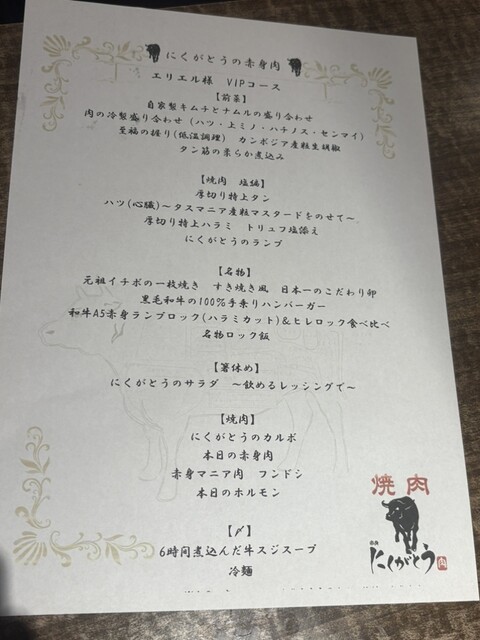 にくがとうの赤身肉
エリエル様　VIPコース
【前菜】
自家製キムチとナムルの盛り合わせ
肉の冷製盛り合わせ（ハツ・上ミノ・ハチノス・センマイ）
至福の握り(低温調理)　カンボジア産粒生胡椒
タン筋の柔らか煮込み
【焼肉　塩編】
厚切り特上タン
ハツ(心臓)～タスマニア産粒マスタードをのせて～
厚切り特上ハラミ　トリュフ塩添え
にくがとうのランプ
【名物】
元祖イチボの一枚焼き　すき焼き風　日本一のこだわり卵
黒毛和牛の100%手乗りハンバーガー
和牛A5赤身ランプロック(ハラミカット)&ヒレロック食べ比べ
名物ロック飯
【箸休め】
にくがとうのサラダ　～飲めるレッシングで～
【焼肉】
にくがとうのカルボ
本日の赤身肉
赤身マニア肉　フンドシ
本日のホルモン
【〆】
6時間煮込んだ牛スジスープ
冷麺
焼肉
にくがとう